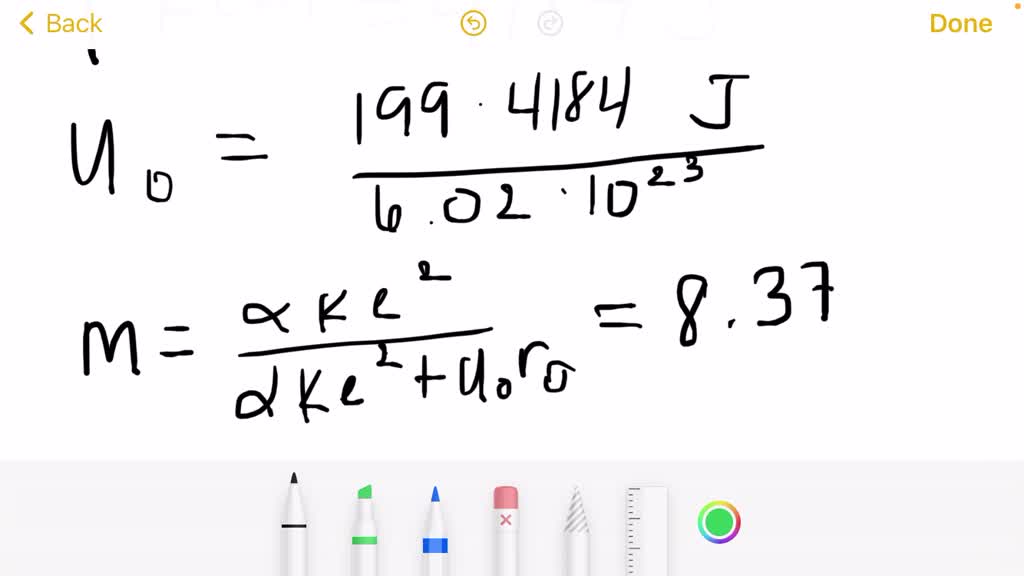 Back Done
U₀ = 199.4184 J
6.02 · 10²³
m = αke²
αke² + U₀r₀ = 8.37